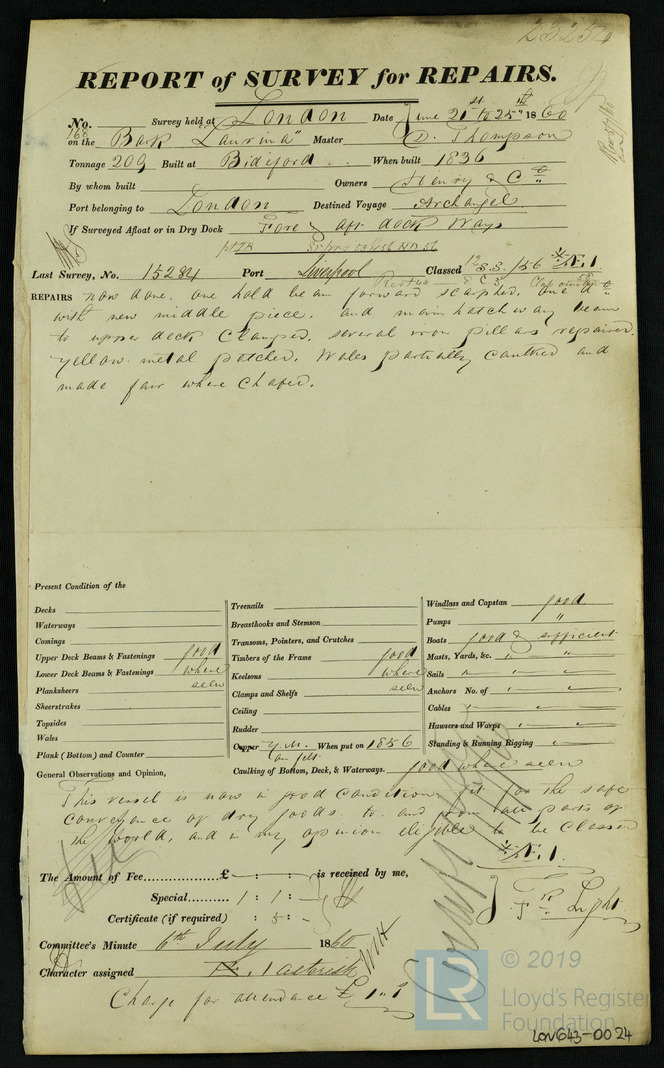 23254
REPORT of SURVEY for REPAIRS.
No. 168 Survey held at London Date June 21st to 25th 1860
on the Bark "Laurina" Master D. Thompson
Tonnage 209 Built at Bideford When built 1836
By whom built Owners Henry & Co
Port belonging to London Destined Voyage Archangel
If Surveyed Afloat or in Dry Dock Fore & aft dock Ways
Last Survey, No. 15284 Port Liverpool Classed 12 S.S. /56 Æ 1
REPAIRS now done. one hold beam forward scarphed. one do
with new middle piece. and main hatchway beam
to upper deck Clamped. several iron pillars repaired.
Yellow metal patched. Wales partially caulked and
made fair where chafed.
Present Condition of the
Decks
Waterways
Comings
Upper Deck Beams & Fastenings good
Lower Deck Beams & Fastenings where
Planksheers seen
Sheerstrakes
Topsides
Wales
Plank (Bottom) and Counter
Treenails
Breasthooks and Stemson
Transoms, Pointers, and Crutches
Timbers of the Frame good
Keelsons where
Clamps and Shelfs seen
Ceiling
Rudder
Copper Y.M. When put on 1856
on felt
Caulking of Bottom, Deck, & Waterways. good where seen
Windlass and Capstan good
Pumps "
Boats good & sufficient
Masts, Yards, &c. " "
Sails " "
Anchors No. of " "
Cables " "
Hawsers and Warps " "
Standing & Running Rigging " "
General Observations and Opinion,
This vessel is now in good condition, fit for the safe
conveyance of dry goods to and from all parts of
the world, and in my opinion eligible to be Classed
Æ. 1.
The Amount of Fee £ - : - : - is received by me,
Special 1 : 1 : -
Certificate (if required) : 5 : -
Light
Committee's Minute 6th July 1860
Character assigned Æ. 1 asterisk
Charge for attendance £ 1 " 1
LR
© 2019
Lloyd's Register
Foundation
LON643-0024